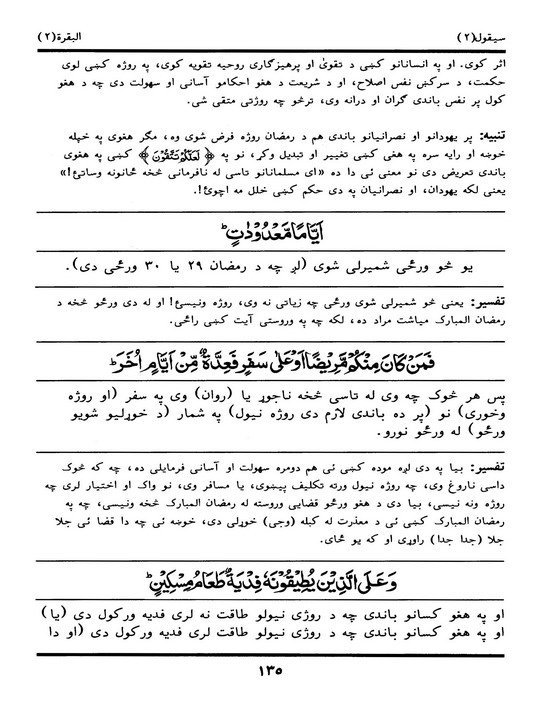 سيقول(٢) البقرة(٢)
اثر کوی. او په انسانانو کښی د تقویٰ او پرهیزګاری روحیه تقویه کوی، په روژه کښی لوی
حکمت، د سرکښ نفس اصلاح، او د شریعت د هغو احکامو آسانی او سهولت دی چه د هغو
کول پر نفس باندی ګران او درانه وی، ترڅو چه روژتی متقی شی.
تنبیه: پر یهودانو او نصرانیانو باندی هم د رمضان روژه فرض شوی وه، مګر هغوی په خپله
خوښه او رایه سره په هغی کښی تغییر او تبدیل وکړ، نو په ﴿ لَعَلَّكُمْ تَتَّقُونَ ﴾ کښی په هغوی
باندی تعریض دی نو معنی ئی دا ده «ای مسلمانانو تاسی له نافرمانی څخه ځانونه وساتئ!»
یعنی لکه یهودان، او نصرانیان په دی حکم کښی خلل مه اچوئ!.
اَيَّامًا مَّعْدُوْدٰتٍ ؕ
یو څو ورځی شمیرلی شوی (لږ چه د رمضان ۲۹ یا ۳۰ ورځی دی).
تفسیر: یعنی څو شمیرلی شوی ورځی چه زیاتی نه وی، روژه ونیسئ! او له دی ورځو څخه د
رمضان المبارک میاشت مراد ده، لکه چه په وروستی آیت کښی راځی.
فَمَنْ كَانَ مِنْكُمْ مَّرِيْضًا اَوْ عَلٰى سَفَرٍ فَعِدَّةٌ مِّنْ اَيَّامٍ اُخَرَ ؕ
پس هر څوک چه وی له تاسی څخه ناجوړ یا (روان) وی په سفر (او روژه
وخوری) نو (پر ده باندی لازم دی روژه نیول) په شمار (د خوړلیو شویو
ورځو) له ورځو نورو.
تفسیر: بیا په دی لږه موده کښی ئی هم دومره سهولت او آسانی فرمایلی ده، چه که څوک
داسی ناروغ وی، چه روژه نیول ورته تکلیف پیښوی، یا مسافر وی، نو واک او اختیار لری چه
روژه ونه نیسی، بیا دی د هغو ورځو قضایی وروسته له رمضان المبارک څخه ونیسی، چه په
رمضان المبارک کښی ئی د معذرت له کبله (وجی) خوړلی دی، خوښه ئی چه دا قضا ئی جلا
جلا (جدا جدا) راوړی او که یو ځای.
وَعَلَى الَّذِيْنَ يُطِيْقُوْنَهٗ فِدْيَةٌ طَعَامُ مِسْكِيْنٍ ؕ
او په هغو کسانو باندی چه د روژی نیولو طاقت نه لری فدیه ورکول دی (یا)
او په هغو کسانو باندی چه د روژی نیولو طاقت لری فدیه ورکول دی (او دا
١٣٥